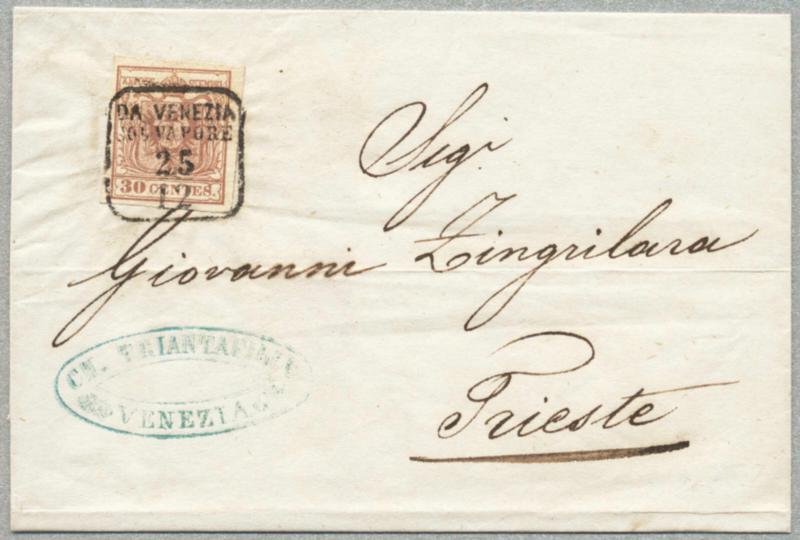 DA VENEZIA
COL VAPORE
25
12
30 CENTES.
Sigr
Giovanni Zingrilara
Trieste
CN. TRIANTAFILLI
VENEZIA